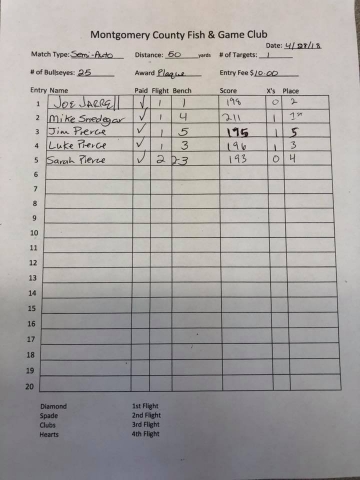 Montgomery County Fish & Game Club
Date: 4/28/18
Match Type: Semi-Auto Distance: 50 yards # of Targets: 1
# of Bullseyes: 25 Award Plaque Entry Fee $10.00
Entry Name Paid Flight Bench Score X's Place
1 Joe Jarrell ✓ 1 1 198 0 2
2 Mike Smedegar ✓ 1 4 211 1 1st
3 Jim Pierce ✓ 1 5 195 1 5
4 Luke Pierce ✓ 1 3 196 1 3
5 Sarah Pierce ✓ 2 3 193 0 4
6
7
8
9
10
11
12
13
14
15
16
17
18
19
20
Diamond 1st Flight
Spade 2nd Flight
Clubs 3rd Flight
Hearts 4th Flight